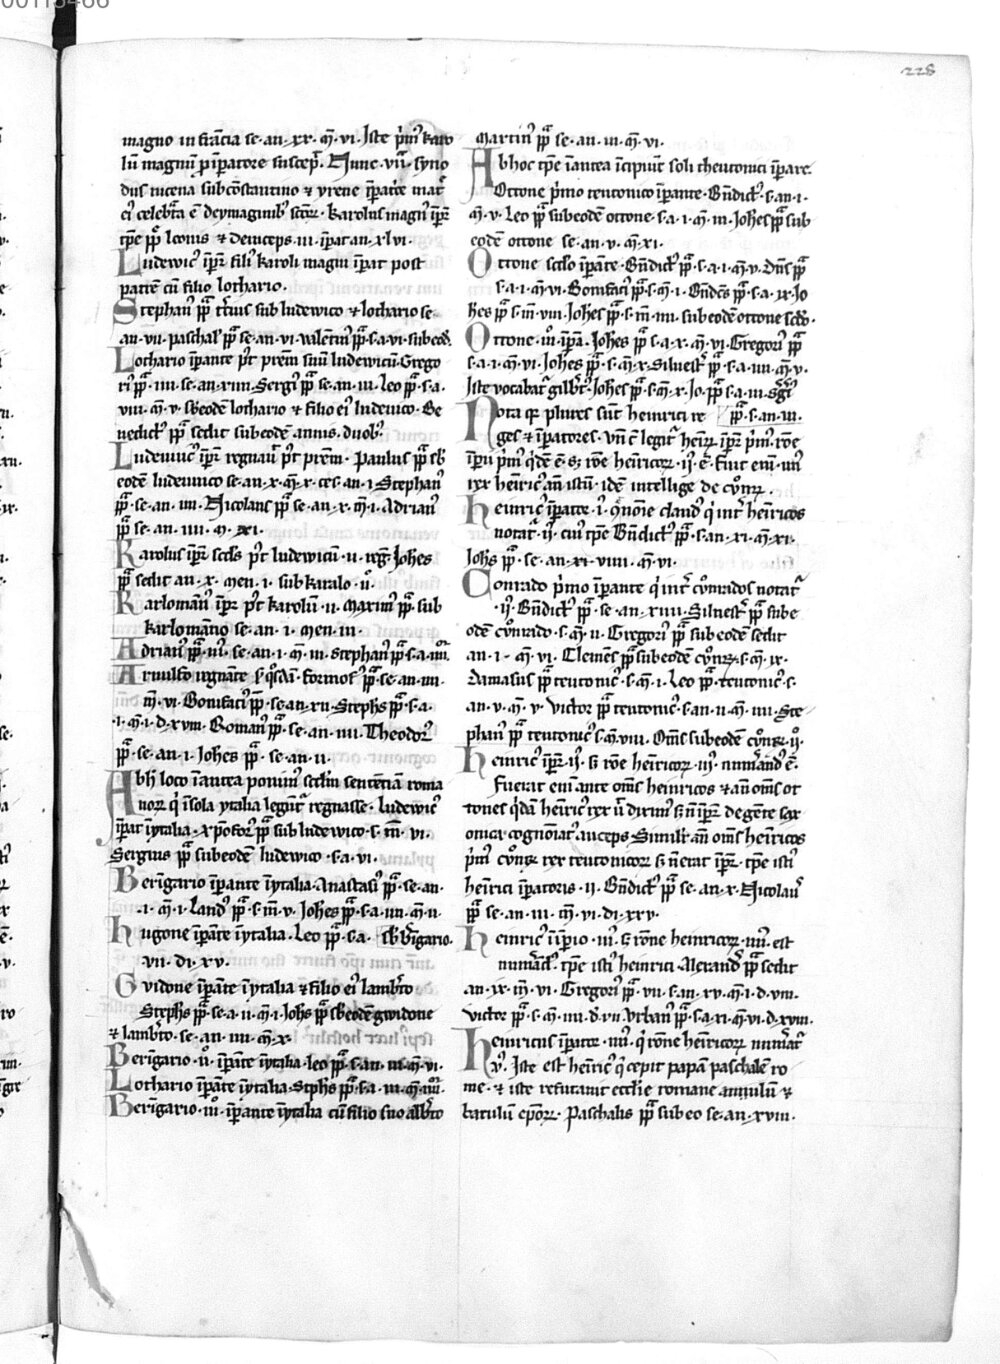 228
magno in francia se. an. xx. m̄. vi. Iste p̄m' karo
lū magnū p̄ īp̄atore suscep̄. Hunc. vii. syno
dus nicena sub cōstantino ⁊ yrene īp̄at̄e mat̄
ei' celebr̄ta ē de ymaginib' s̄c̄or̄. Karolus magn' īp̄r̄
tp̄e p̄p̄ leonis ⁊ deinceps. iii. īp̄at an. xlvi.
Ludewic' īp̄r̄ fili' karoli magni īp̄at post
patrē cū filio lothario.
Stephan' p̄p̄ t̄cius sub ludewico ⁊ lothario se.
an. vii. paschal' p̄p̄ se. an. vi. valētin' p̄p̄. s. a. vi. sub eod̄.
Lothario īp̄ante p't prēm suū ludewicū. Grego
ri' p̄p̄. iiii. se. an. xiiii. Sergi' p̄p̄ se. an. iii. Leo p̄p̄. s. a.
viii. m̄. v. sb̄ eodē lothario ⁊ filio ei' ludewico. Be
nedict' p̄p̄ sedit sub eodē annis. duob'.
Ludewic' īp̄r̄ regnau' p't prēm. Paulus p̄p̄ sb̄
eodē ludewico se. an. x. m̄. x. ces. an. i Stephan'
p̄p̄. se. an. iiii. Nicolaus p̄p̄ se. an. x. m̄. i. Adrian'
p̄p̄ se. an. iiii. m̄. xi.
Karolus īp̄r̄ sc̄ds p't ludewicū. ii. reg̅. Johes
p̄p̄ sedit an. x. men. i. sub karolo. ii.
Karloman' īp̄r̄ p't Karolū. ii. Marin' p̄p̄. sub
karlomāno se. an. i. men. iii.
Adrian' p̄p̄. iii. se. an. i. m̄. iii. Stephan' p̄p̄ s. a.
Arnulfo regnāte s' q̄sdā. formos' p̄p̄. se. an. iiii.
m̄. vi. Bonifaci' p̄p̄. se. an. xii. Stephs p̄p̄. s. a.
i. m̄. i. d. xviii. Roman' p̄p̄. se. an. iiii. Theodor'
p̄p̄. se. an. i. Johes p̄p̄. se. an. ii.
Ab h' loco īantea ponim' scd̄m sentētiā roma
nor̄ q' ī sola ytalia legūt' regnasse. Ludewic'
īp̄at ī ytalia. xp̄ofor' p̄p̄ sub ludewico. s. m̄. vi.
Sergius p̄p̄ sub eodē ludewico. s. a. vi.
Berīgario īp̄ante ī ytalia. Anastasi' p̄p̄. se. an.
i. m̄. i. Land' p̄p̄. s. m̄. v. Johes p̄p̄. s. a. iiii. m̄. ii.
Hugone īp̄ante ī ytalia. Leo p̄p̄. s. a. sb̄ b̄īgario.
vii. di. xv.
Gvidone īp̄ante ī ytalia ⁊ filio ei' lamb̄to
Stephs p̄p̄. se. a. ii. m̄. i. Johs p̄p̄. sb̄ eodē gwidone
⁊ lamb̄to. se. an. iiii. m̄. x.
Berīgario. ii. īp̄ante ī ytalia. leo p̄p̄. s. an. iii. m̄. vi.
Lothario īp̄ante ī ytalia. Stephs p̄p̄. s. a. iii. m̄. iiii.
Berīgario. iii. īp̄ante ī ytalia cū filio suo alb̄to
Martin' p̄p̄ se. an. iii. m̄. vi.
Ab hoc tp̄e īantea īcipiūt soli theutonici īp̄are.
Ottone p'mo teutonico īp̄ante. Bn̄dict'. s. an. i.
m̄. v. Leo p̄p̄ sub eodē ottone. s. a. i. m̄. iii. Johes p̄p̄ sub
eodē ottone se. an. v. m̄. xi.
Ottone sc̄do īp̄ante. Bn̄dict' p̄p̄. s. a. i. m̄. v. Dn̄s p̄p̄
s. a. i. m̄. vi. Bonifaci' p̄p̄. s. m̄. i. Bn̄dc̄s p̄p̄. s. a. ix. Jo
hes p̄p̄ s. m̄. viii. Johes p̄p̄. s. m̄. iiii. sub eodē ottone sc̄do.
Ottone. iii. īp̄an̄. Johes p̄p̄ s. a. x. m̄. vi. Gregori' p̄p̄
s. a. i. m̄. vi. Johes p̄p̄. s. m̄. x. Siluest' p̄p̄. s. a. iiii. m̄. v.
Iste vocabat' gilb̄t'. Johes p̄p̄. s. m̄. x. Jo. p̄p̄. s. a. iii. Sḡi'
p̄p̄. s. an. iii.
Nota q̄ plures sūt heinrici re
ges ⁊ īp̄atores. vn̄ c̄ legit' hein̄r. īp̄r̄ p'm'. rōe
īp̄ii p'm' q'dē ē. s; rōe hein̄ricor̄. ii. ē. Fuit eni' vn'
rex hein̄ric' an̄ istū. idē intellige de cōnr̄.
Heinric' īp̄ato'e. i. q' nōie claud' q' int' hein̄ricos
notat'. ii. cui' tp̄e Bn̄dict' p̄p̄. s. an. xi. m̄. xi.
Johs p̄p̄. se. an. xi. viiii. m̄. vi.
Conrado p'mo īp̄ante q' int' cōnrados notat'
.ii. Bn̄dict' p̄p̄. se. an. xiiii. Siluest' p̄p̄ sub e
odē cōnrado. s. m̄. ii. Gregori' p̄p̄ sub eodē sedit
an. i. m̄. vi. Clemēs p̄p̄ sub eodē cōnr̄. s. m̄. ix.
Damasus p̄p̄ teutonic'. s. m̄. i. Leo p̄p̄. teutonic'. s.
an. v. m̄. v. victor p̄p̄ teutonic'. s. an. ii. m̄. iiii. Ste
phan' p̄p̄ teutonic' s. m̄. viii. Om̄s sub eodē cōnr̄. ii.
Heinric' īp̄r̄. ii. s; rōe hein̄ricor̄. iii. nūm̄and' ē.
Fuerat eni' ante om̄s heinricos ⁊ an̄ om̄s ot
tones q'dā hein̄ric' rex s; n̄ īp̄r̄ de gēte sax
onica cognoīat' auceps. Simili' an̄ om̄s hein̄ricos
p'm' cōnr̄. rex teutonicor̄. s; n̄ erat īp̄r̄. tp̄e isti'
hein̄rici īp̄atoris. ii. Bn̄dict' p̄p̄ se. an. x. Nicolau'
p̄p̄ se. an. iii. m̄. vi. di. xxv.
Heinric' īp̄io. iii. s; rōne heinricor̄. iiii. est
num̄and'. tp̄e isti' heinrici. Alexand' p̄p̄ sedit
an. ix. m̄. vi. Gregori' p̄p̄. vii. s. an. xv. m̄. i. d. viii.
Victor p̄p̄. s. m̄. iiii. d. vii. Vrban' p̄p̄. s. a. xi. m̄. vi. d. xviii.
Heinricus īp̄ator. iiii. q' rōne hein̄ricor̄ num̄at'
.v. Iste est hein̄ric' q' cepit papam paschalē ro
me. ⁊ iste refutauit ecclīe romane anulū ⁊
baculū ep̄or̄. Paschalis p̄p̄ sub eo se. an. xviii.